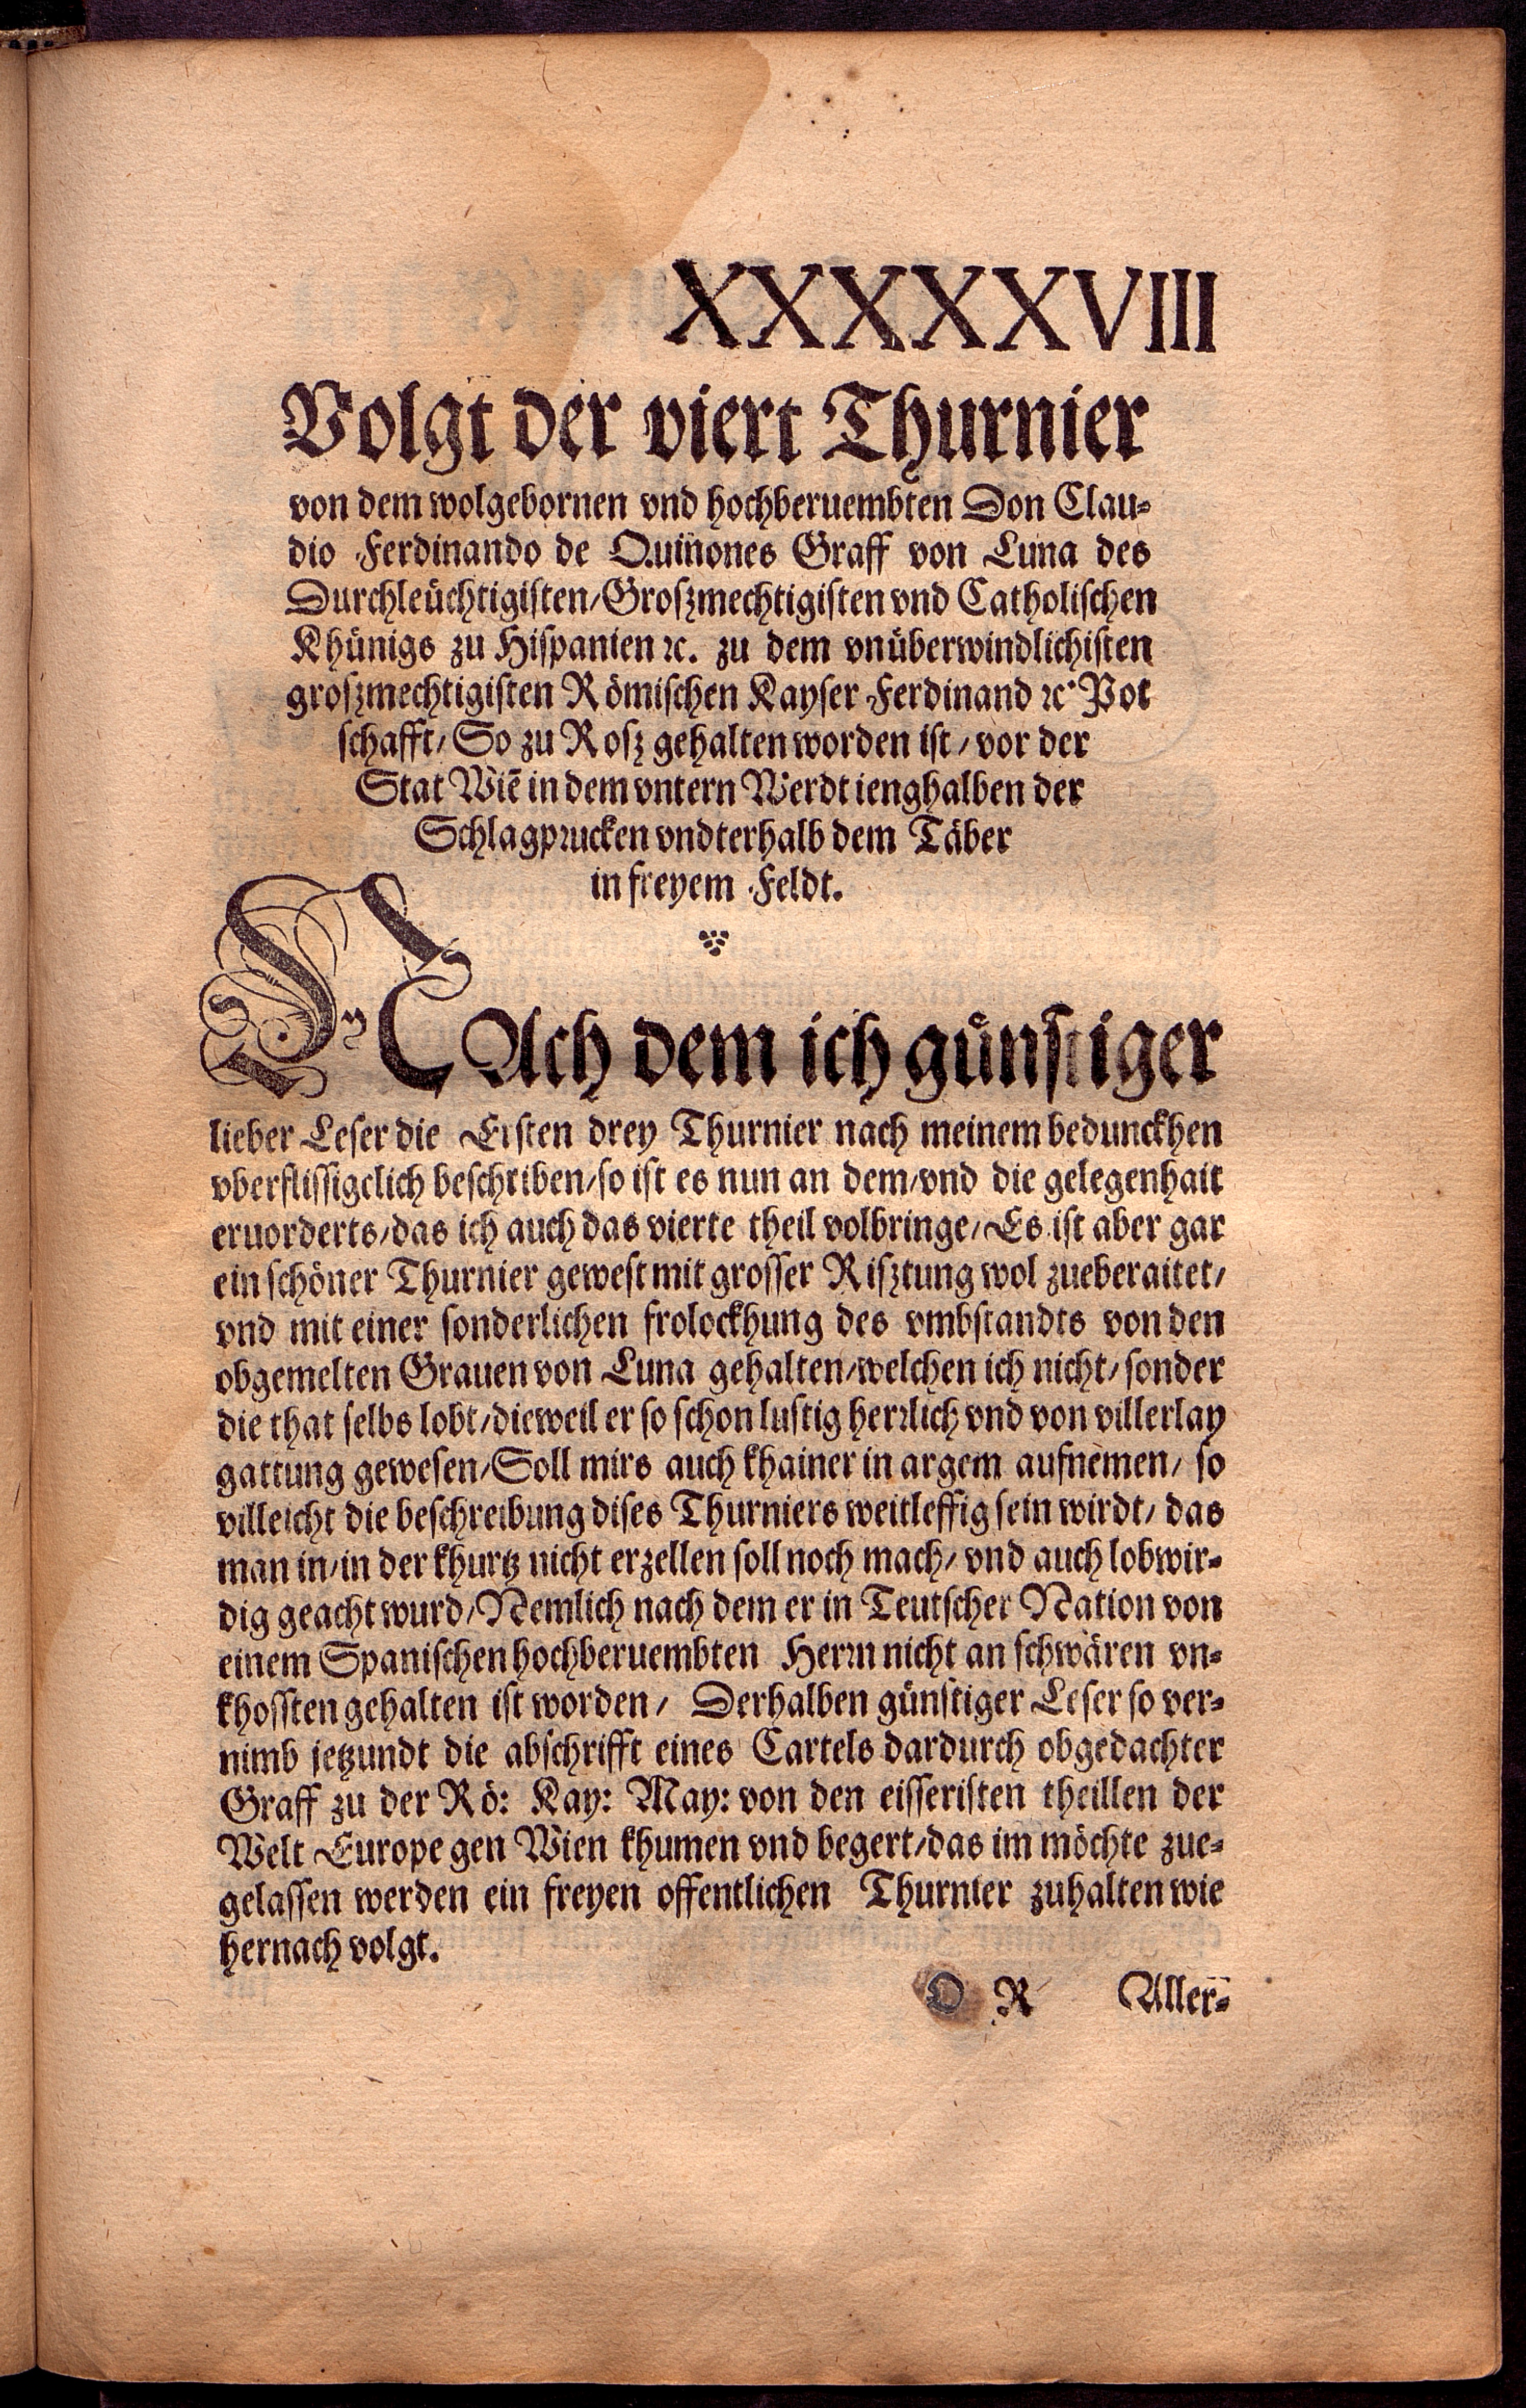 XXXXXVIII
Volgt der viert Thurnier
von dem wolgebornen vnd hochberuembten Don Clau-
dio Ferdinando de Quinones Graff von Luna des
Durchleüchtigisten/Groszmechtigisten vnd Catholischen
Khünigs zu Hispanien ꝛc. zu dem vnüberwindlichisten
groszmechtigisten Römischen Kayser Ferdinand ꝛc. Pot
schafft/ So zu Rosz gehalten worden ist/ vor der
Stat Wiē in dem vntern Werdt ienghalben der
Schlagprucken vndterhalb dem Täber
in freyem Feldt.
NAch dem ich günstiger
lieber Leser die Ersten drey Thurnier nach meinem bedunckhen
vberflissigclich beschriben/so ist es nun an dem/vnd die gelegenhait
eruorderts/das ich auch das vierte theil volbringe/Es ist aber gar
ein schöner Thurnier gewest mit grosser Risztung wol zueberaitet/
vnd mit einer sonderlichen frolockhung des vmbstandts von den
obgemelten Grauen von Luna gehalten/welchen ich nicht/ sonder
die that selbs lobt/dieweil er so schon lustig herrlich vnd von villerlay
gattung gewesen/Soll mirs auch khainer in argem aufnemen/ so
villeicht die beschreibung dises Thurniers weitleffig sein wirdt/ das
man in/in der khurtz nicht erzellen soll noch mach/ vnd auch lobwir-
dig geacht wurd/Nemlich nach dem er in Teutscher Nation von
einem Spanischen hochberuembten Herrn nicht an schwären vn-
khossten gehalten ist worden/ Derhalben günstiger Leser so ver-
nimb jetzundt die abschrifft eines Cartels dardurch obgedachter
Graff zu der Rö: Kay: May: von den eisseristen theillen der
Welt Europe gen Wien khumen vnd begert/das im möchte zue-
gelassen werden ein freyen offentlichen Thurnier zuhalten wie
hernach volgt.
O R Aller-